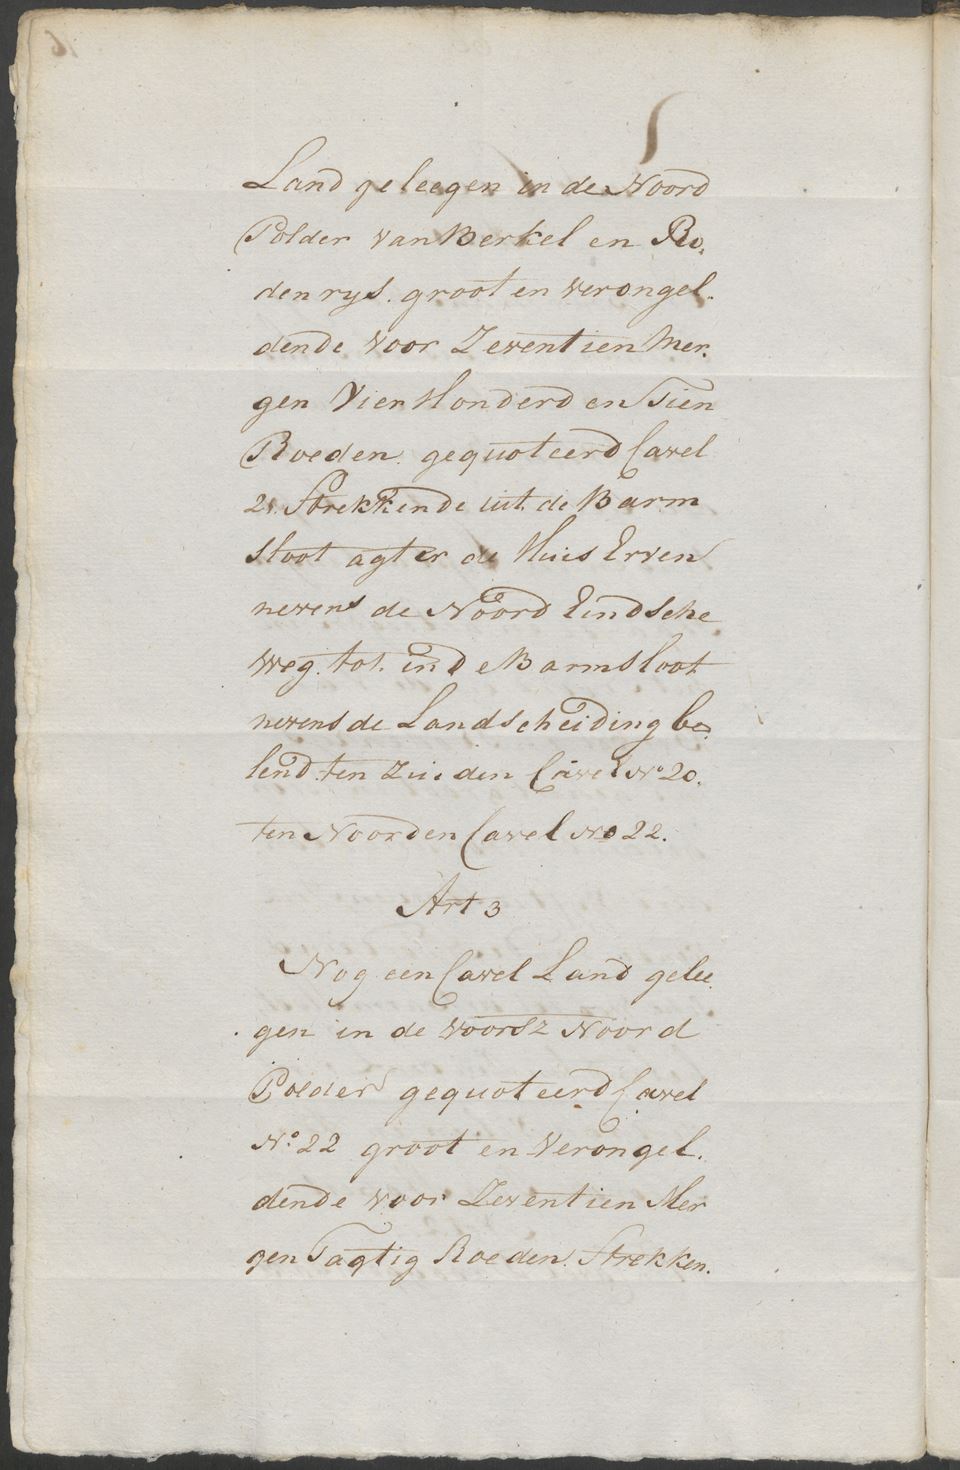 Land geleegen in de Noord
Polder van Berkel en Ro,
denrys. groot en verongel.
dende voor Zeventien Mer.
gen Vier Honderd en Tien
Roeden. gequoteerd Cavel
21. Strekkende uit de Barm
sloot agter de Huis Erven
nevens de Noord Eindsche
weg. tot. in de Barmsloot
nevens de Landscheiding be,
lend. ten Zuiden Cavel No 20.
ten Noorden Cavel No 22.
Art 3
Nog een Cavel Land gelee.
gen in de voorsz Noord
Polder gequoteerd Cavel
No. 22 groot en Verongel.
dende voor Zeventien Mer
gen Tagtig Roeden. Strekken.